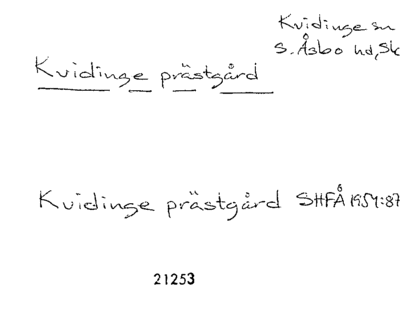 Kvidinge sn
S. Åsbo hd, Sk
Kvidinge prästgård
Kvidinge prästgård SHFÅ 1954:87
21253